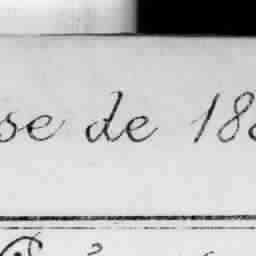 se de 188